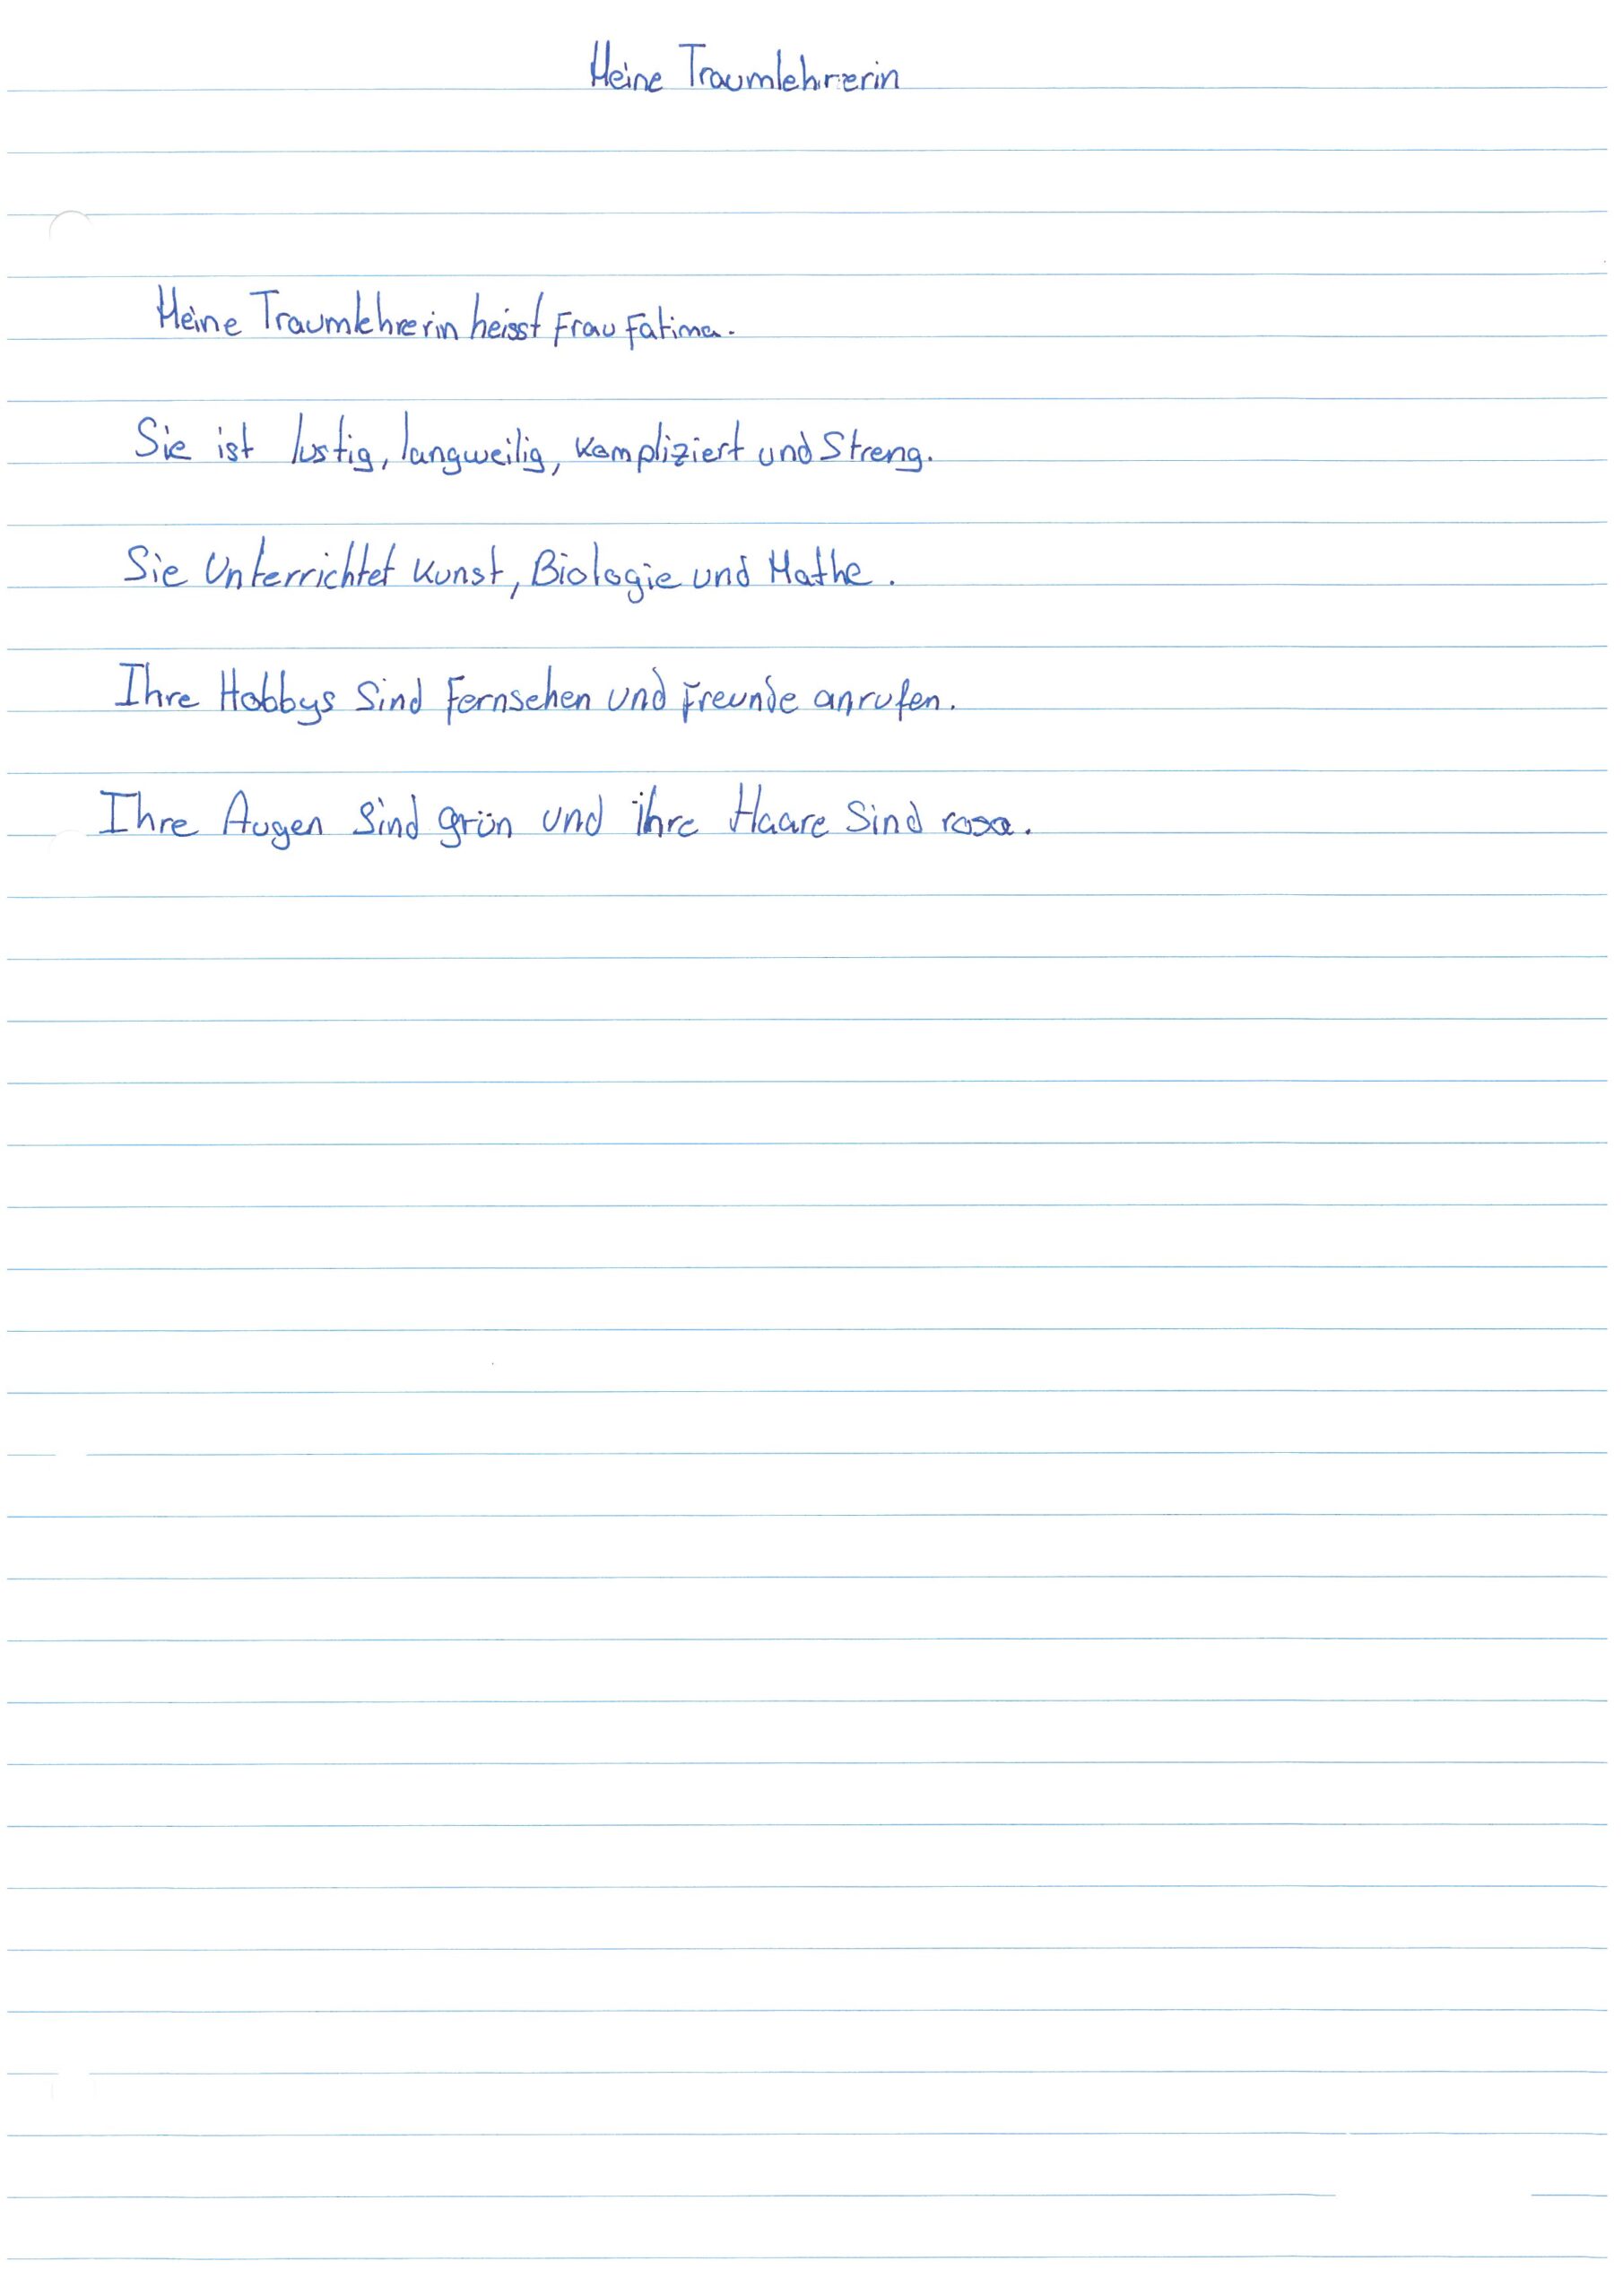 Meine Traumlehrerin
Meine Traumlehrerin heisst Frau Fatima.
Sie ist lustig, langweilig, kompliziert und Streng.
Sie Unterrichtet Kunst, Biologie und Mathe.
Ihre Hobbys Sind Fernsehen und Freunde anrufen.
Ihre Augen Sind grün und ihre Haare Sind rosa.